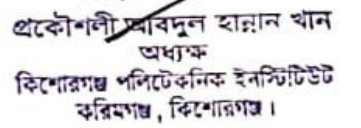 প্রকৌশলী আবদুল হান্নান খান
অধ্যক্ষ
কিশোরগঞ্জ পলিটেকনিক ইনস্টিটিউট
করিমগঞ্জ, কিশোরগঞ্জ।